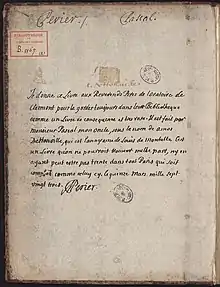 Perier /.
Pascal.
B. 1167
Je donne ce Livre aux Reverends Peres de l'oratoire de
Clermont pour le garder toujours dans leur Bibliotheque
comme un Livre de consequence et tres rare. Il est fait par
monsieur Pascal mon oncle, sous le nom de amos
Dettonville, qui est l'anagramme de Louis de Montalte. C'est
un Livre qu'on ne pourroit trouver nulle part, ny en
ayant peut estre pas trente dans tout Paris qui soit
complet comme celuy cy. le quinze Mars mille sept
vingt trois.
Perier